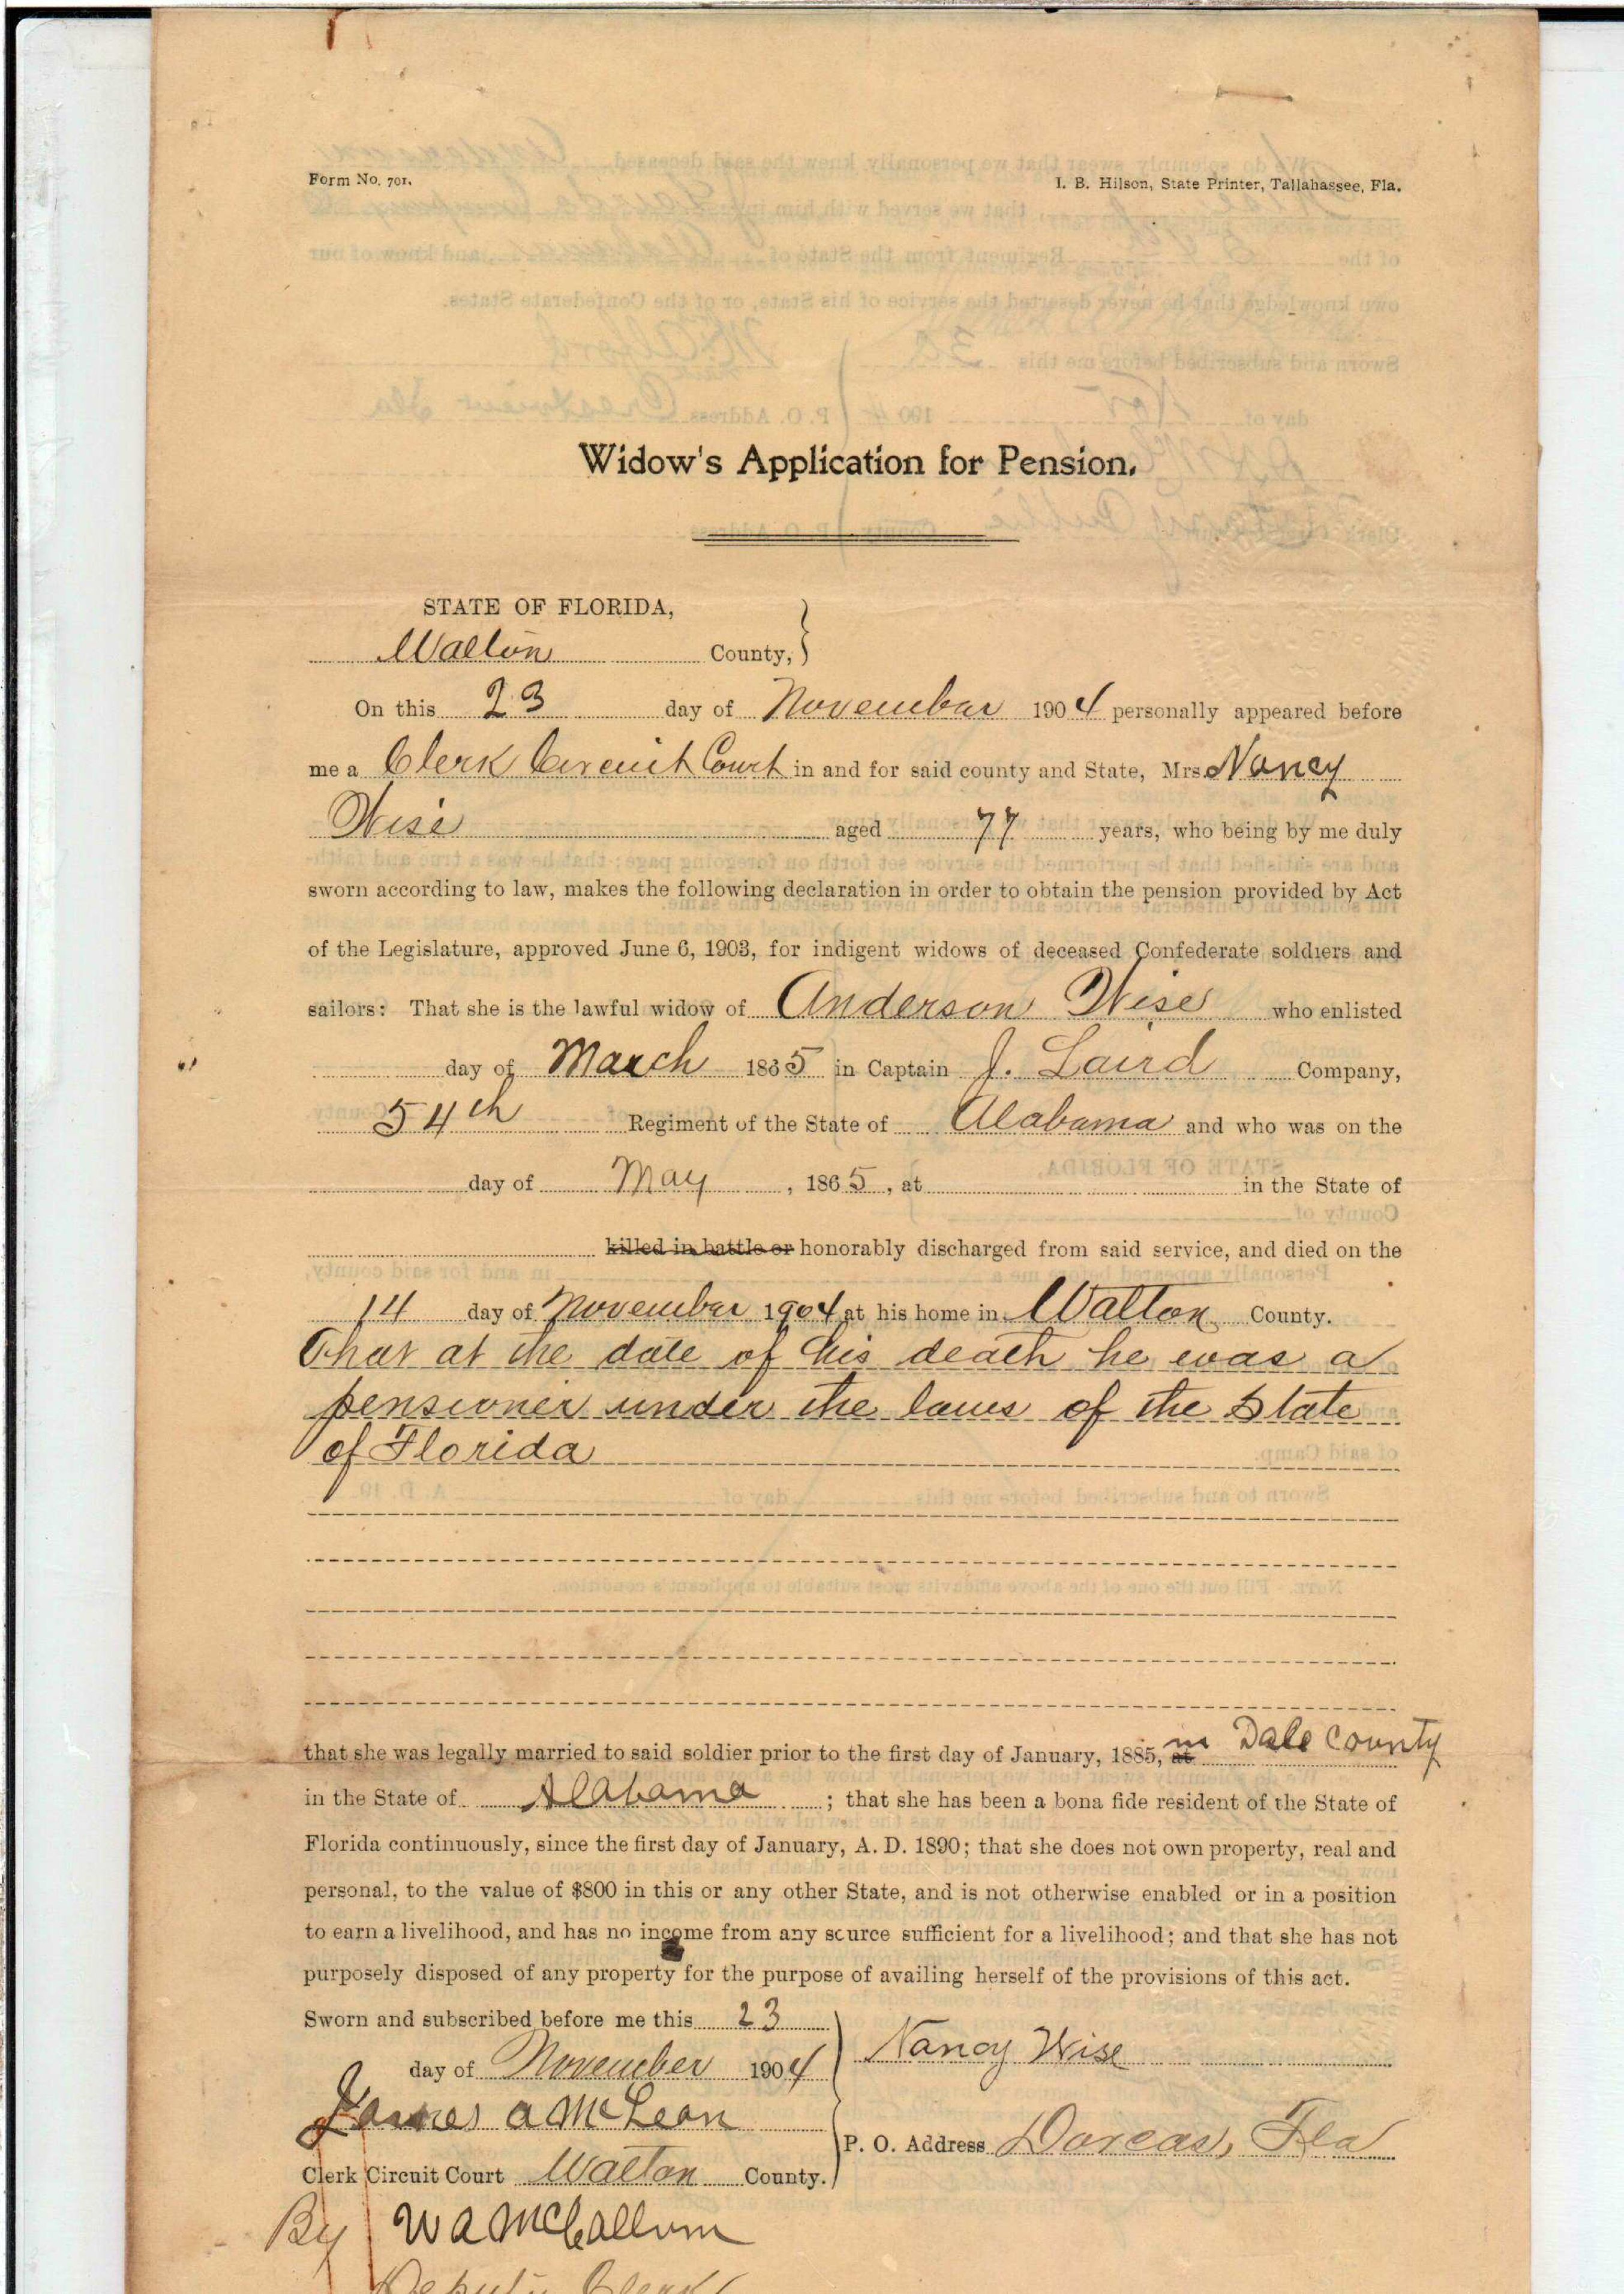 Form No. 701. I. B. Hilson, State Printer, Tallahassee, Fla.
Widow's Application for Pension.
STATE OF FLORIDA,
Walton County, }
On this 23 day of November 1904 personally appeared before
me a Clerk Circuit Court in and for said county and State, Mrs. Nancy
Wise aged 77 years, who being by me duly
sworn according to law, makes the following declaration in order to obtain the pension provided by Act
of the Legislature, approved June 6, 1903, for indigent widows of deceased Confederate soldiers and
sailors: That she is the lawful widow of Anderson Wise who enlisted
day of March 1865 in Captain J. Laird Company,
54th Regiment of the State of Alabama and who was on the
day of May, 1865, at in the State of
killed in battle or honorably discharged from said service, and died on the
14 day of November 1904 at his home in Walton County.
That at the date of his death he was a
pensioner under the laws of the State
of Florida
that she was legally married to said soldier prior to the first day of January, 1885, at in Dale County
in the State of Alabama; that she has been a bona fide resident of the State of
Florida continuously, since the first day of January, A. D. 1890; that she does not own property, real and
personal, to the value of $800 in this or any other State, and is not otherwise enabled or in a position
to earn a livelihood, and has no income from any source sufficient for a livelihood; and that she has not
purposely disposed of any property for the purpose of availing herself of the provisions of this act.
Sworn and subscribed before me this 23
day of November 1904
Nancy Wise
James A McLean
P. O. Address Dorcas, Fla
Clerk Circuit Court Walton County.
By W A McCallum
Deputy Clerk